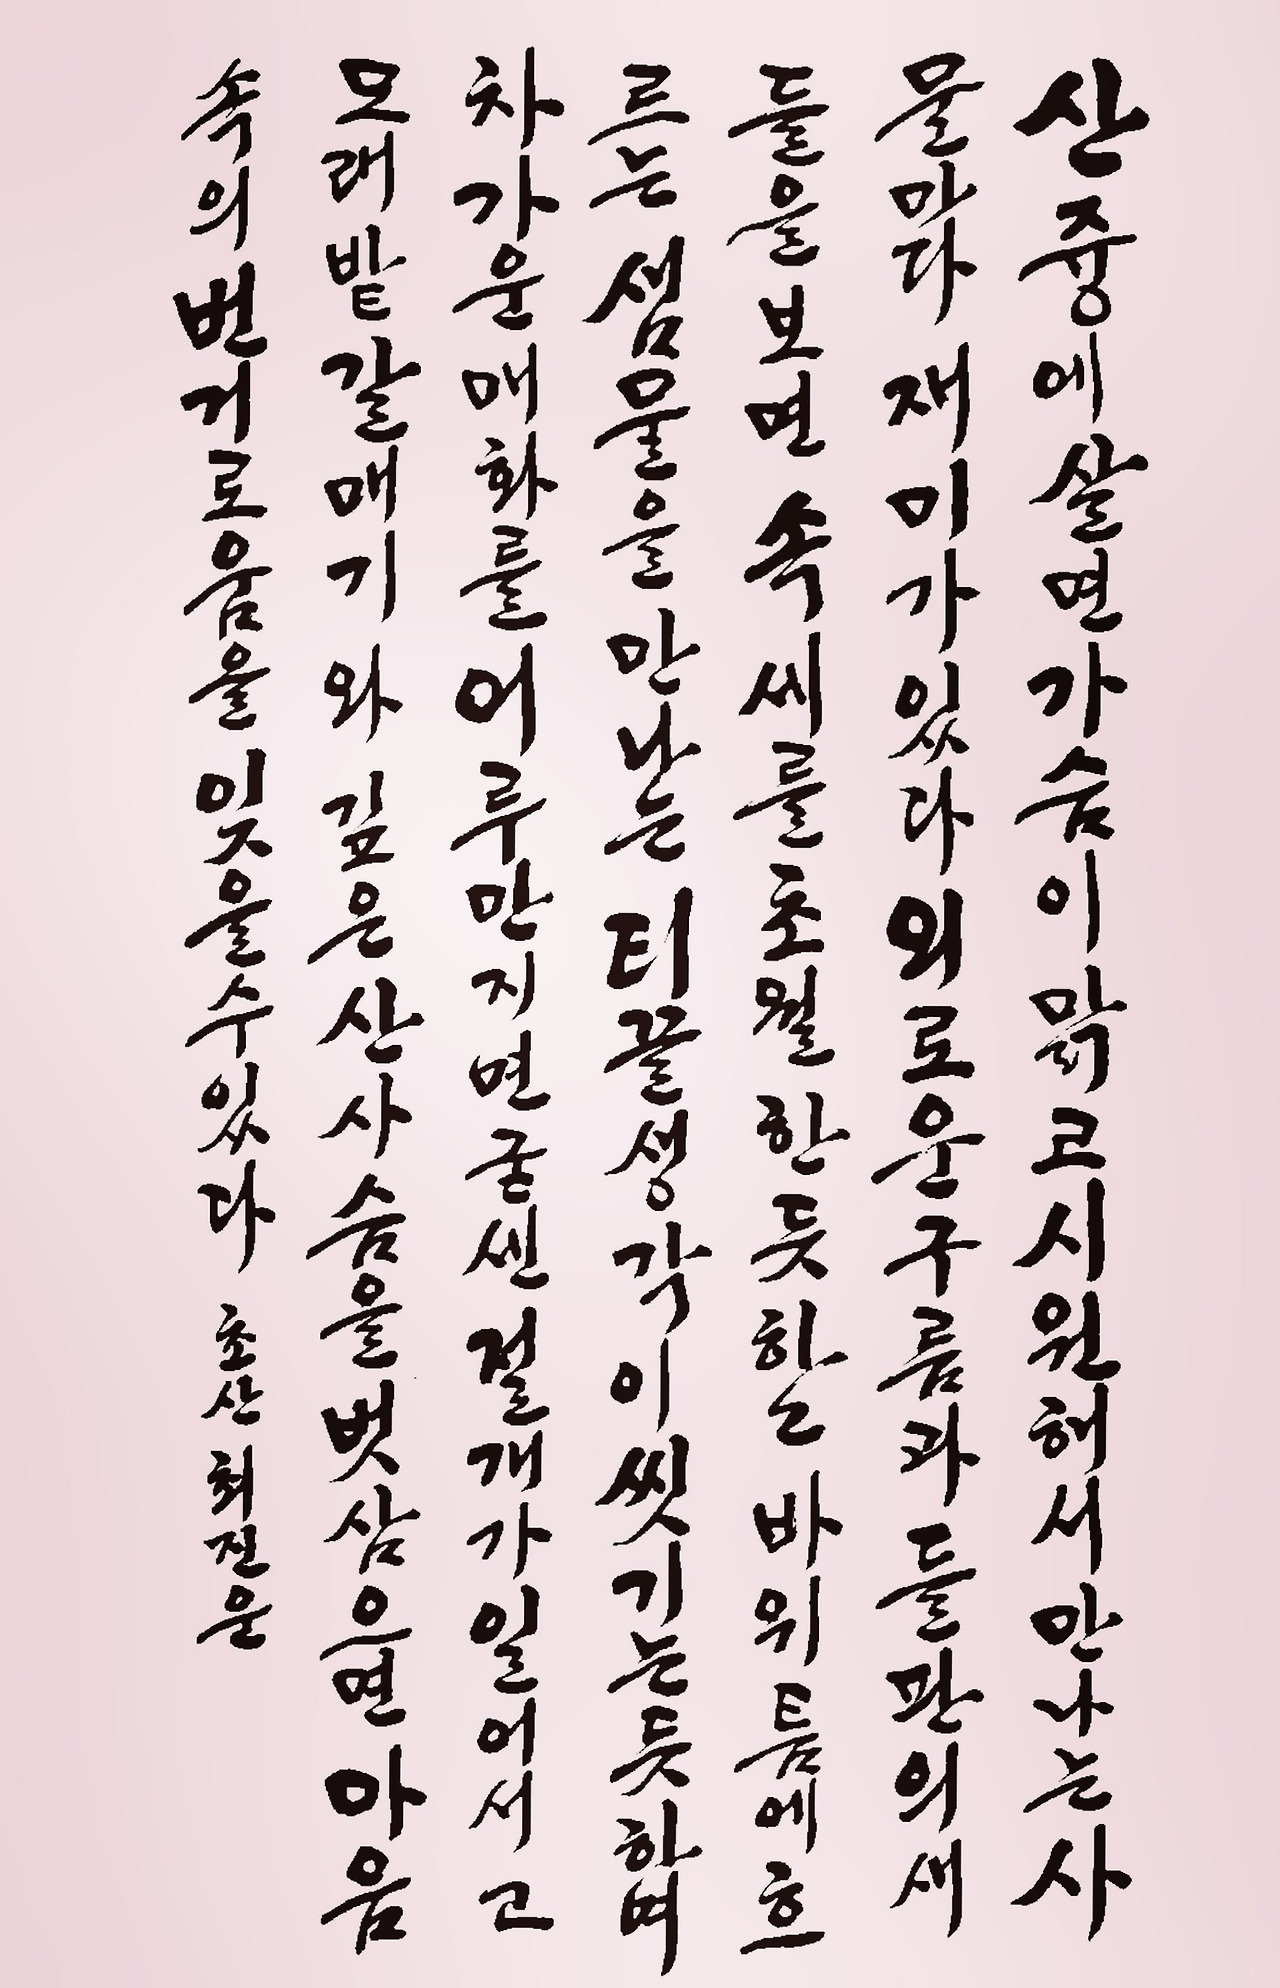 산중에 살면 가슴이 맑고 시원해서 만나는 사
물마다 재미가 있다 외로운 구름과 들판의 새
들을 보면 속세를 초월한 듯하고 바위 틈에 흐
르는 샘물을 만나는 티끌 생각이 씻기는 듯하며
차가운 매화를 어루만지면 굳센 절개가 일어서고
모래밭 갈매기와 깊은 산 사슴을 벗삼으면 마음
속의 번거로움을 잊을 수 있다 초산 최진운